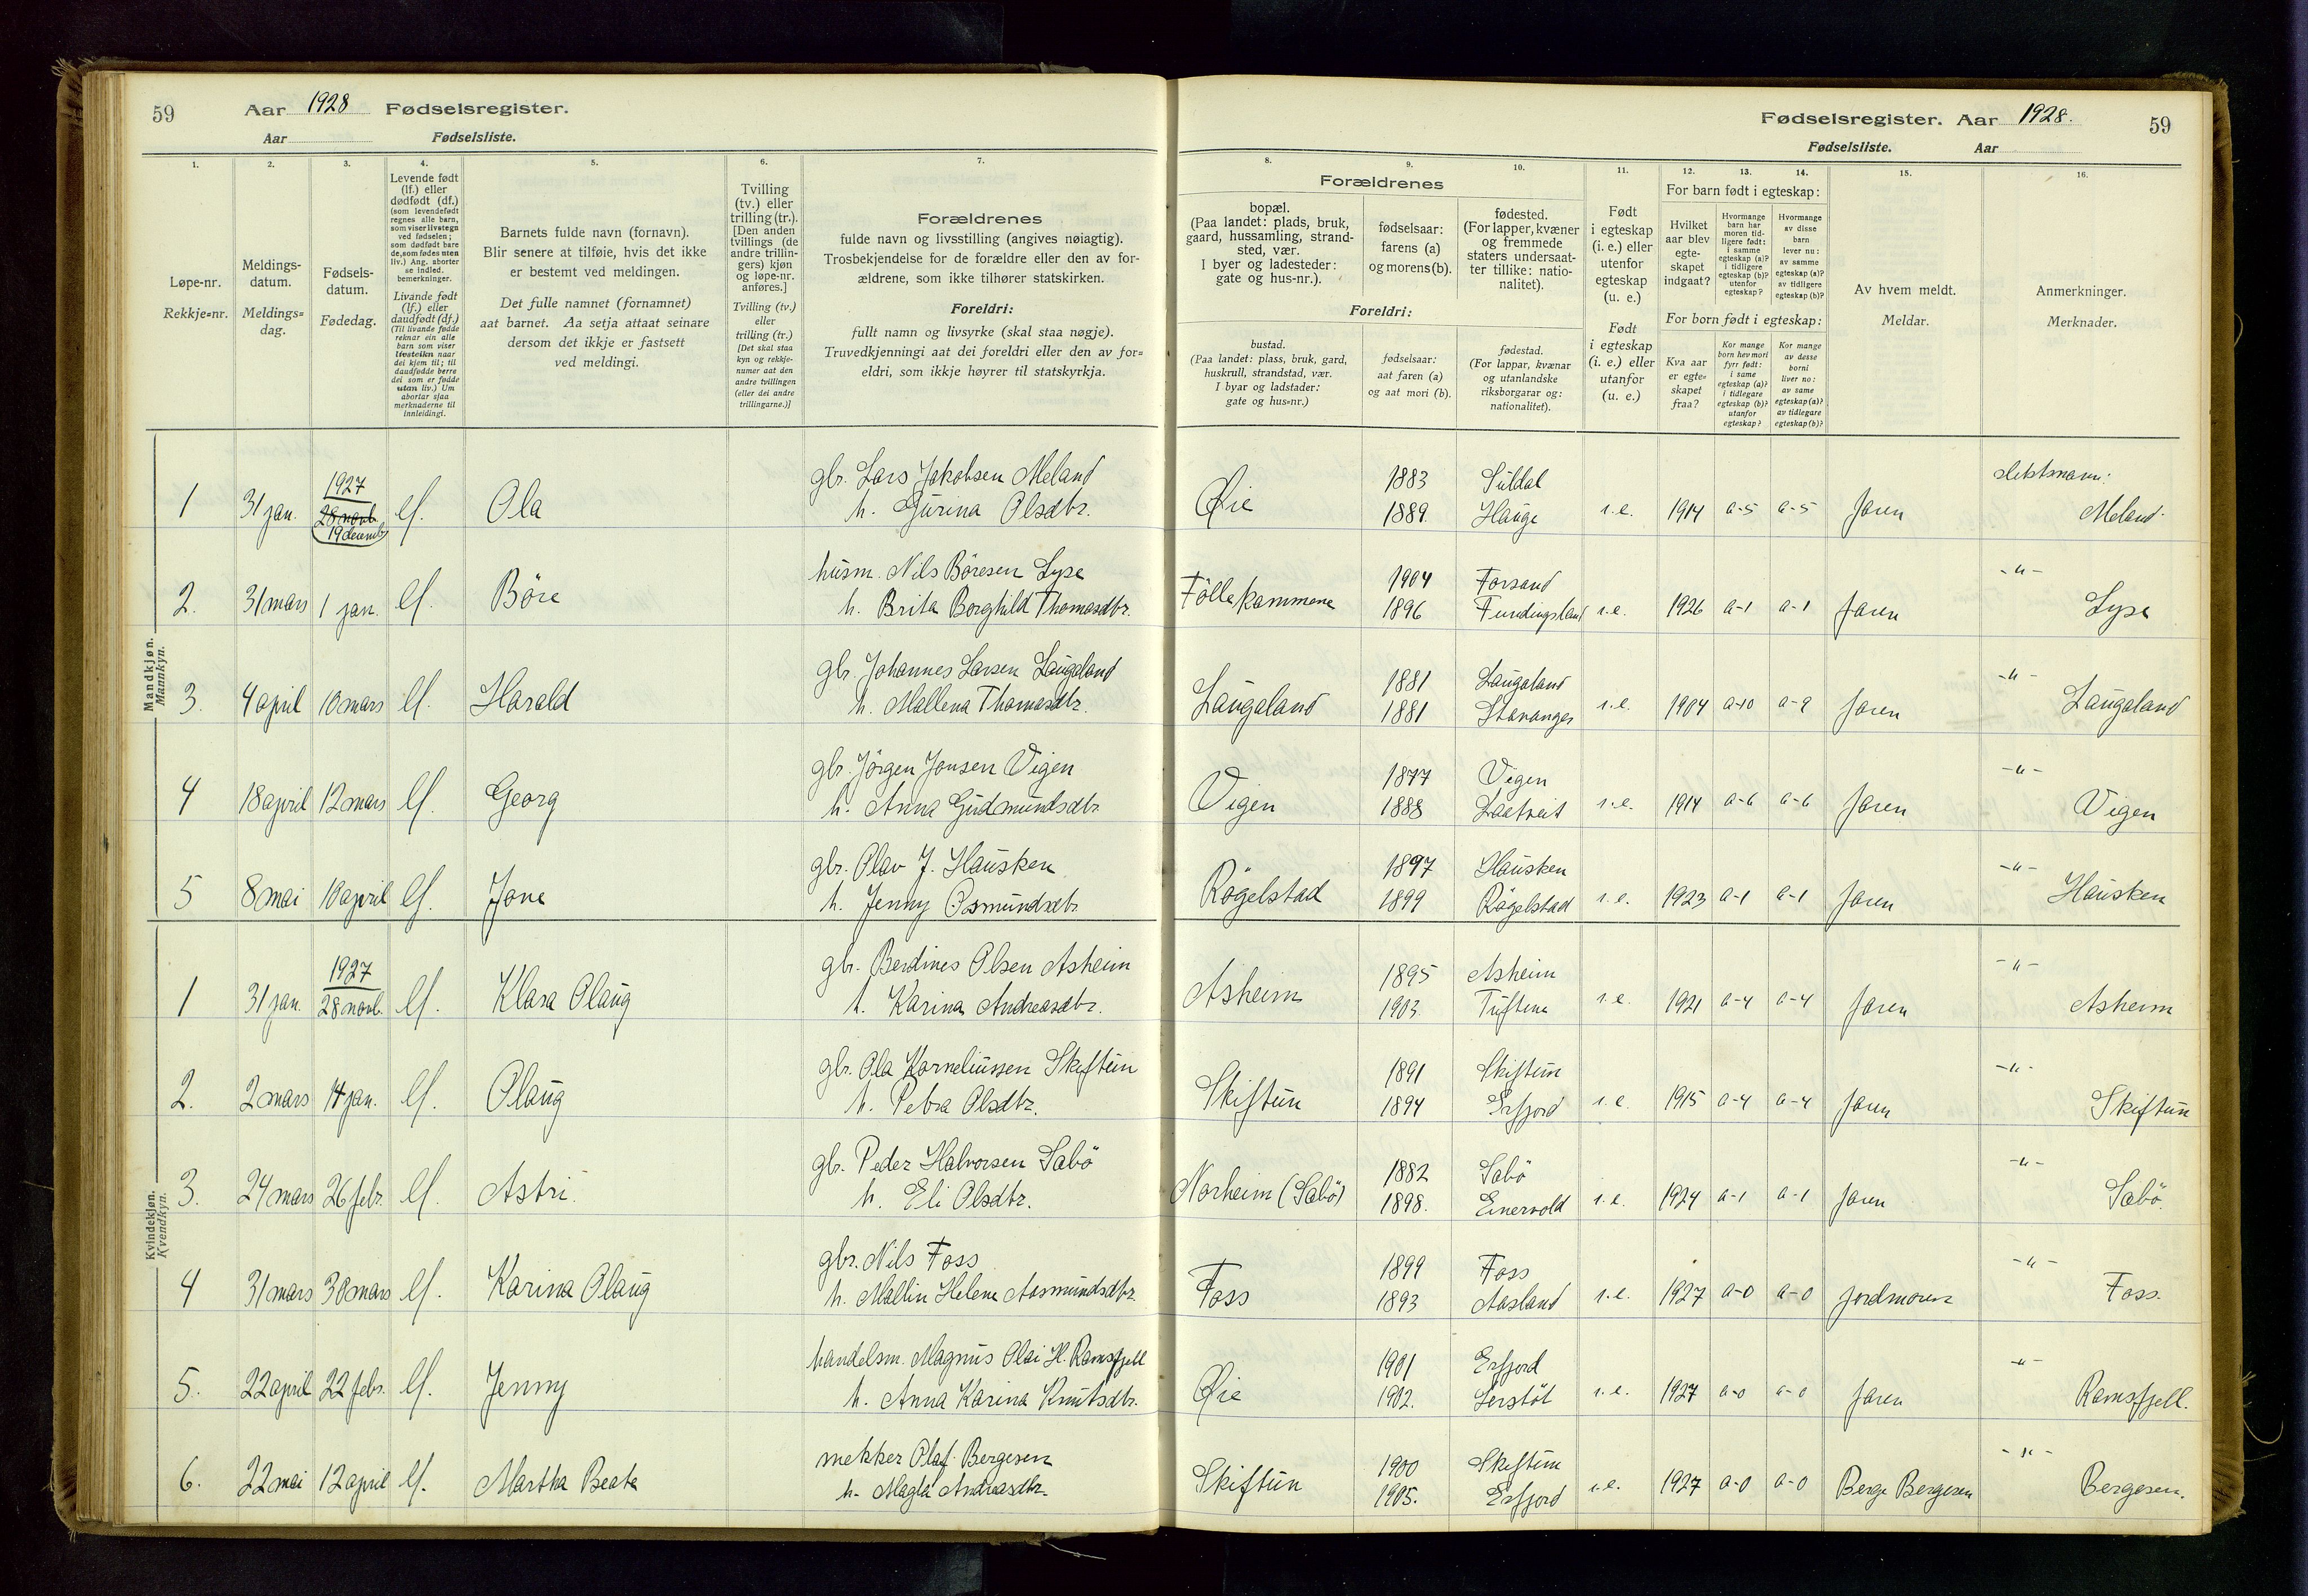 59 Aar 1928 Fødselsregister.
Aar Fødselsliste.
Fødselsregister. Aar 1928. 59
Fødselsliste. Aar
1. 2. 3. 4. 5. 6. 7.
8. 9. 10. 11. 12. 13. 14. 15. 16.
Løpe-nr.
Rekkje=nr.
Meldings-
datum.
Meldings=
dag.
Fødsels-
datum.
Fødedag.
Levende født
(lf.) eller
dødfødt (df.)
(som levendefødt
regnes alle barn,
som viser livstegn
ved fødselen;
som dødfødt bare
de, som fødes uten
liv.) Ang. aborter
se indled.
bemerkninger.
Livande født
(lf.) eller
daudfødt (df.)
(Til livande fødde
reknar ein alle
barn som viser
livsteikn naar
dei kjem til; til
daudfødde berre
dei som er fødde
utan liv.) Um
abortar sjaa
merknaderne til
innleidingi.
Barnets fulde navn (fornavn).
Blir senere at tilføie, hvis det ikke
er bestemt ved meldingen.
Det fulle namnet (fornamnet)
aat barnet. Aa setja attaat seinare
dersom det ikkje er fastsett
ved meldingi.
Tvilling
(tv.) eller
trilling (tr.).
[Den anden
tvillings (de
andre trillin-
gers) kjøn
og løpe-nr.
anføres.]
Tvilling (tv.)
eller
trilling (tr.)
[Det skal staa
kyn og rekkje-
numer aat den
andre tvillingen
(eller dei andre
trillingarne.)]
Forældrenes
fulde navn og livsstilling (angives nøiagtig).
Trosbekjendelse for de forældre eller den av for-
ældrene, som ikke tilhører statskirken.
Foreldri:
fullt namn og livsyrke (skal staa nøgje).
Truvedkjenningi aat dei foreldri eller den av for=
eldri, som ikkje høyrer til statskyrkja.
Forældrenes
bopæl.
(Paa landet: plads, bruk,
gaard, hussamling, strand-
sted, vær.
I byer og ladesteder:
gate og hus-nr.).
fødselsaar:
farens (a)
og morens (b).
fødested.
(For lapper, kvæner
og fremmede
staters undersaat-
ter tillike: natio-
nalitet).
Foreldri:
bustad.
(Paa landet: plass, bruk, gard,
huskrull, strandstad, vær.
I byar og ladstader:
gate og hus=nr.)
fødselsaar:
aat faren (a)
og aat mori (b).
fødestad.
(For lappar, kvænar
og utanlandske
riksborgarar og:
nationalitet).
Født
i egteskap
(i. e.) eller
utenfor
egteskap
(u. e.)
Født
i egteskap
(i. e.) eller
utanfor
(u. e.)
For barn født i egteskap:
Hvilket
aar blev
egte-
skapet
indgaat?
Hvormange
barn har
moren tid-
ligere født:
i samme
egteskap (a)?
i tidligere
egteskap (b)?
utenfor
egteskap?
Hvormange
av disse
barn
lever nu:
av samme
egteskap (a)?
av tidligere
egteskap (b)?
For born født i egteskap:
Kva aar
er egte=
skapet
fraa?
Kor mange
born hev mori
fyrr født:
i same
egteskap (a)?
i tidlegare
egteskap (b)?
utanfor
egteskap?
Kor mange
av desse
borni
liver no:
av same
egteskap (a)?
av tidlegare
egteskap (b)?
Av hvem meldt.
Meldar.
Anmerkninger.
Merknader.
Mandkjøn.
Mannkyn.
1927 gbr. Lars Jakobsen Meland 1883 Suldal slektsnavn:
1 31 jan. 28 novb. lf. Ola h. Gurina Olsdtr. Øie 1889. Hauge i.e. 1914 a-5 a-5 faren Meland
19 decemb.
husm. Nils Böresen Lyse 1904 Forsand -"-
2. 31 mars 1 jan. lf. Böre h. Brita Borghild Thomasdtr. Föllekammene 1896 Fundingsland i.e. 1926 a-1 a-1 faren Lyse
gbr. Johannes Larsen Laugaland 1881 Laugaland -"-
3. 4 april 10 mars lf. Harald h. Mallena Thomasdtr. Laugaland 1881 Stavanger i.e. 1904 a-10 a-9 faren Laugaland
gbr. Jörgen Jonsen Vigen 1877 Vigen -"-
4 18 april 12 mars lf. Georg h. Anna Gudmundsdtr. Vigen 1888 Laatveit i.e. 1914 a-6 a-6 faren Vigen
gbr. Olav J. Hausken 1897 Hausken -"-
5 8 mai 10 april lf. Jone h. Jenny Osmundsdtr. Rögelstad 1899 Rögelstad i.e. 1923 a-1 a-1 faren Hausken
Kvindekjøn.
Kvendkyn.
1927 gbr. Berdines Olsen Asheim 1895 Asheim -"-
1 31 jan. 28 novb. lf. Klara Olaug h. Karina Andreasdtr. Asheim 1903. Tuftene i.e. 1921 a-4 a-4 faren Asheim
gbr. Ola Korneliussen Skiftun 1891 Skiftun -"-
2. 2 mars 14 jan. lf. Olaug h. Petra Olsdtr. Skiftun 1894 Erfjord i.e. 1915 a-4 a-4 faren Skiftun
gbr. Peder Halvorsen Sabö 1882 Sabö -"-
3. 24 mars 26 febr. lf. Astri h. Eli Olsdtr. Norheim (Sabö) 1898. Einervold i.e. 1924 a-1 a-1 faren Sabö.
gbr. Nils Foss 1899 Foss -"-
4 31 mars 30 mars lf. Karina Olaug h. Mallin Helene Aasmundsdtr. Foss 1893 Aasland i.e. 1927 a-0 a-0 jordmoren Foss.
handelsm. Magnus Olai H. Ramsfjell 1901 Erfjord -"-
5. 22 april 22 febr. lf. Jenny h. Anna Karina Knutsdtr. Øie 1902. i.e. 1927 a-0 a-0 faren Ramsfjell.
snekker Olaf Bergesen 1900 Skiftun -"-
6. 22 mai 12 april lf. Martha Beate h. Magla Andreasdtr. Skiftun 1905. Erfjord i.e. 1927 a-0 a-0 Berge Bergesen Bergesen.